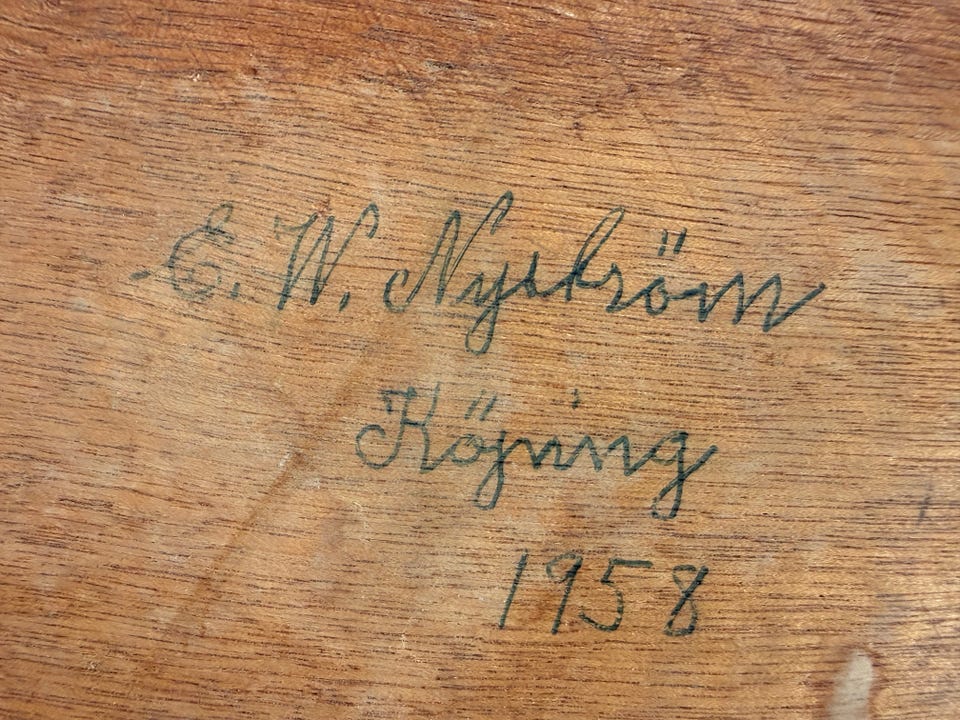 E. W. Nyström
Köping
1958